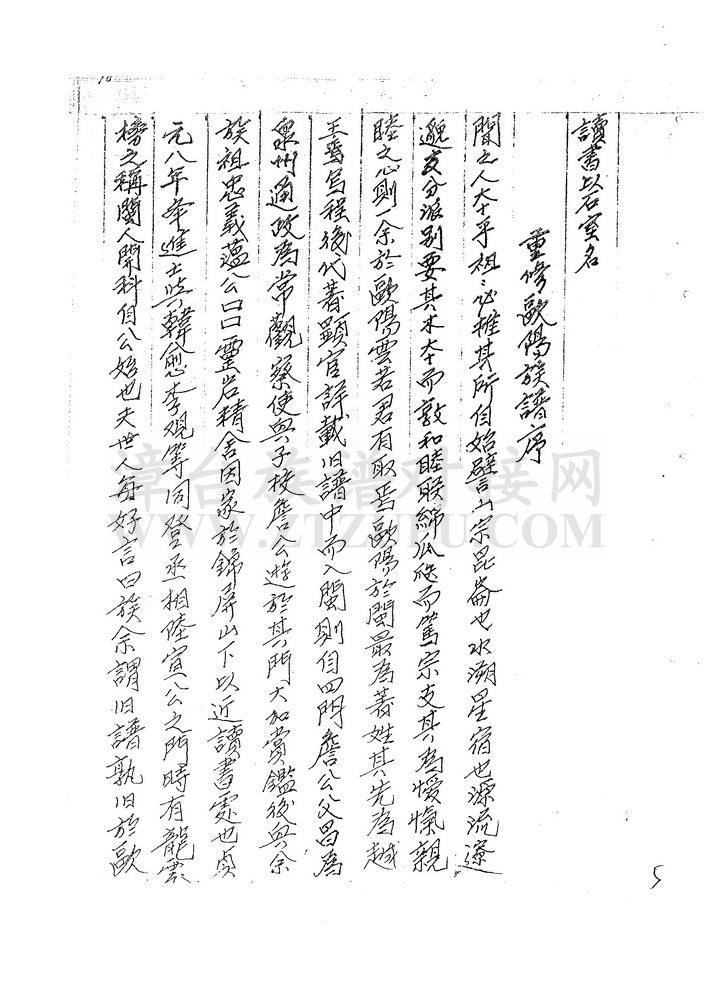 讀書以石室名
重修歐陽族譜序
聞之人本乎祖〻必推其所自始譬山宗昆崙也水溯星宿也源流遼
邈支分派別要其木本而敦和睦聯綿瓜瓞而篤宗支其為愷惻親
睦之心則一余於歐陽雲若君有取焉歐陽於閩最為著姓其先為越
王焉寫程後代著顯官詳載旧譜中而入閩則自四門詹公父昌為
泉州通政為常觀察使與子校詹公遊於其門大加賞鑑後與余
族祖忠義蘊公口口靈岩精舍因家於錦屏山下以近讀書處也貞
元八年舉進士與韓愈李观等同登丞相陸宣公之門時有龍雲
榜之稱閩人開科自公始也夫世人每好言旧族余謂旧譜孰旧於歐
漳台族谱对接网
WWW.ZTZUPU.COM
10
5